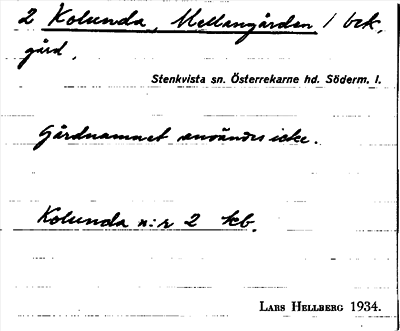 2 Kolunda, Mellangården 1 bek.
gård.
Stenkvista sn. Österrekarne hd. Söderm. l.
Gårdnamnet användes icke.
Kolunda n:r 2 kb.
LARS HELLBERG 1934.